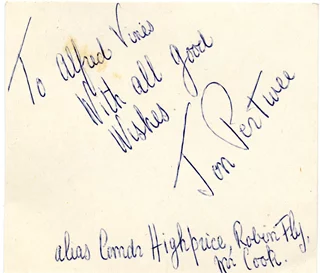 To Alfred Vines
With all good
Wishes.
Jon Pertwee
alias Comdr Highprice, Robin Fly,
Mr Cook.